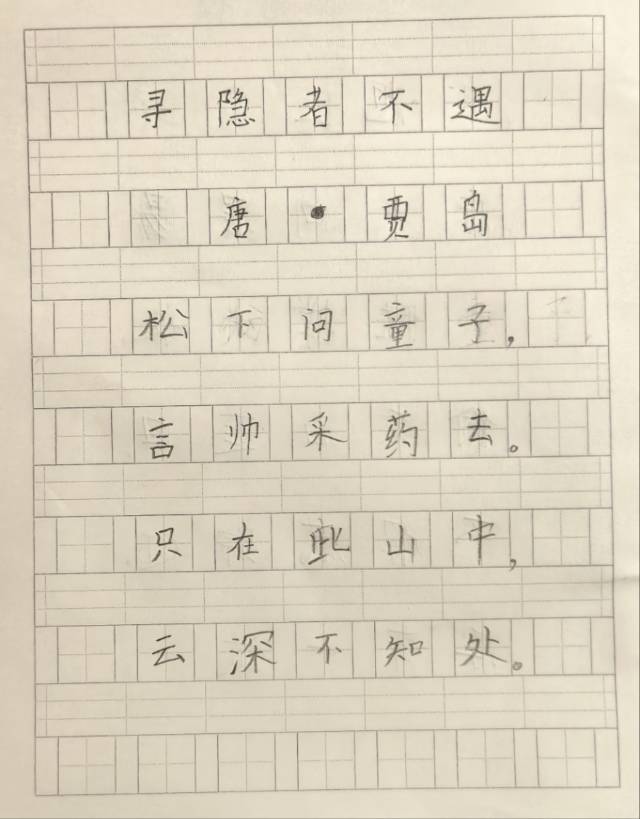 寻隐者不遇
唐·贾岛
松下问童子，
言帅采药去。
只在此山中，
云深不知处。